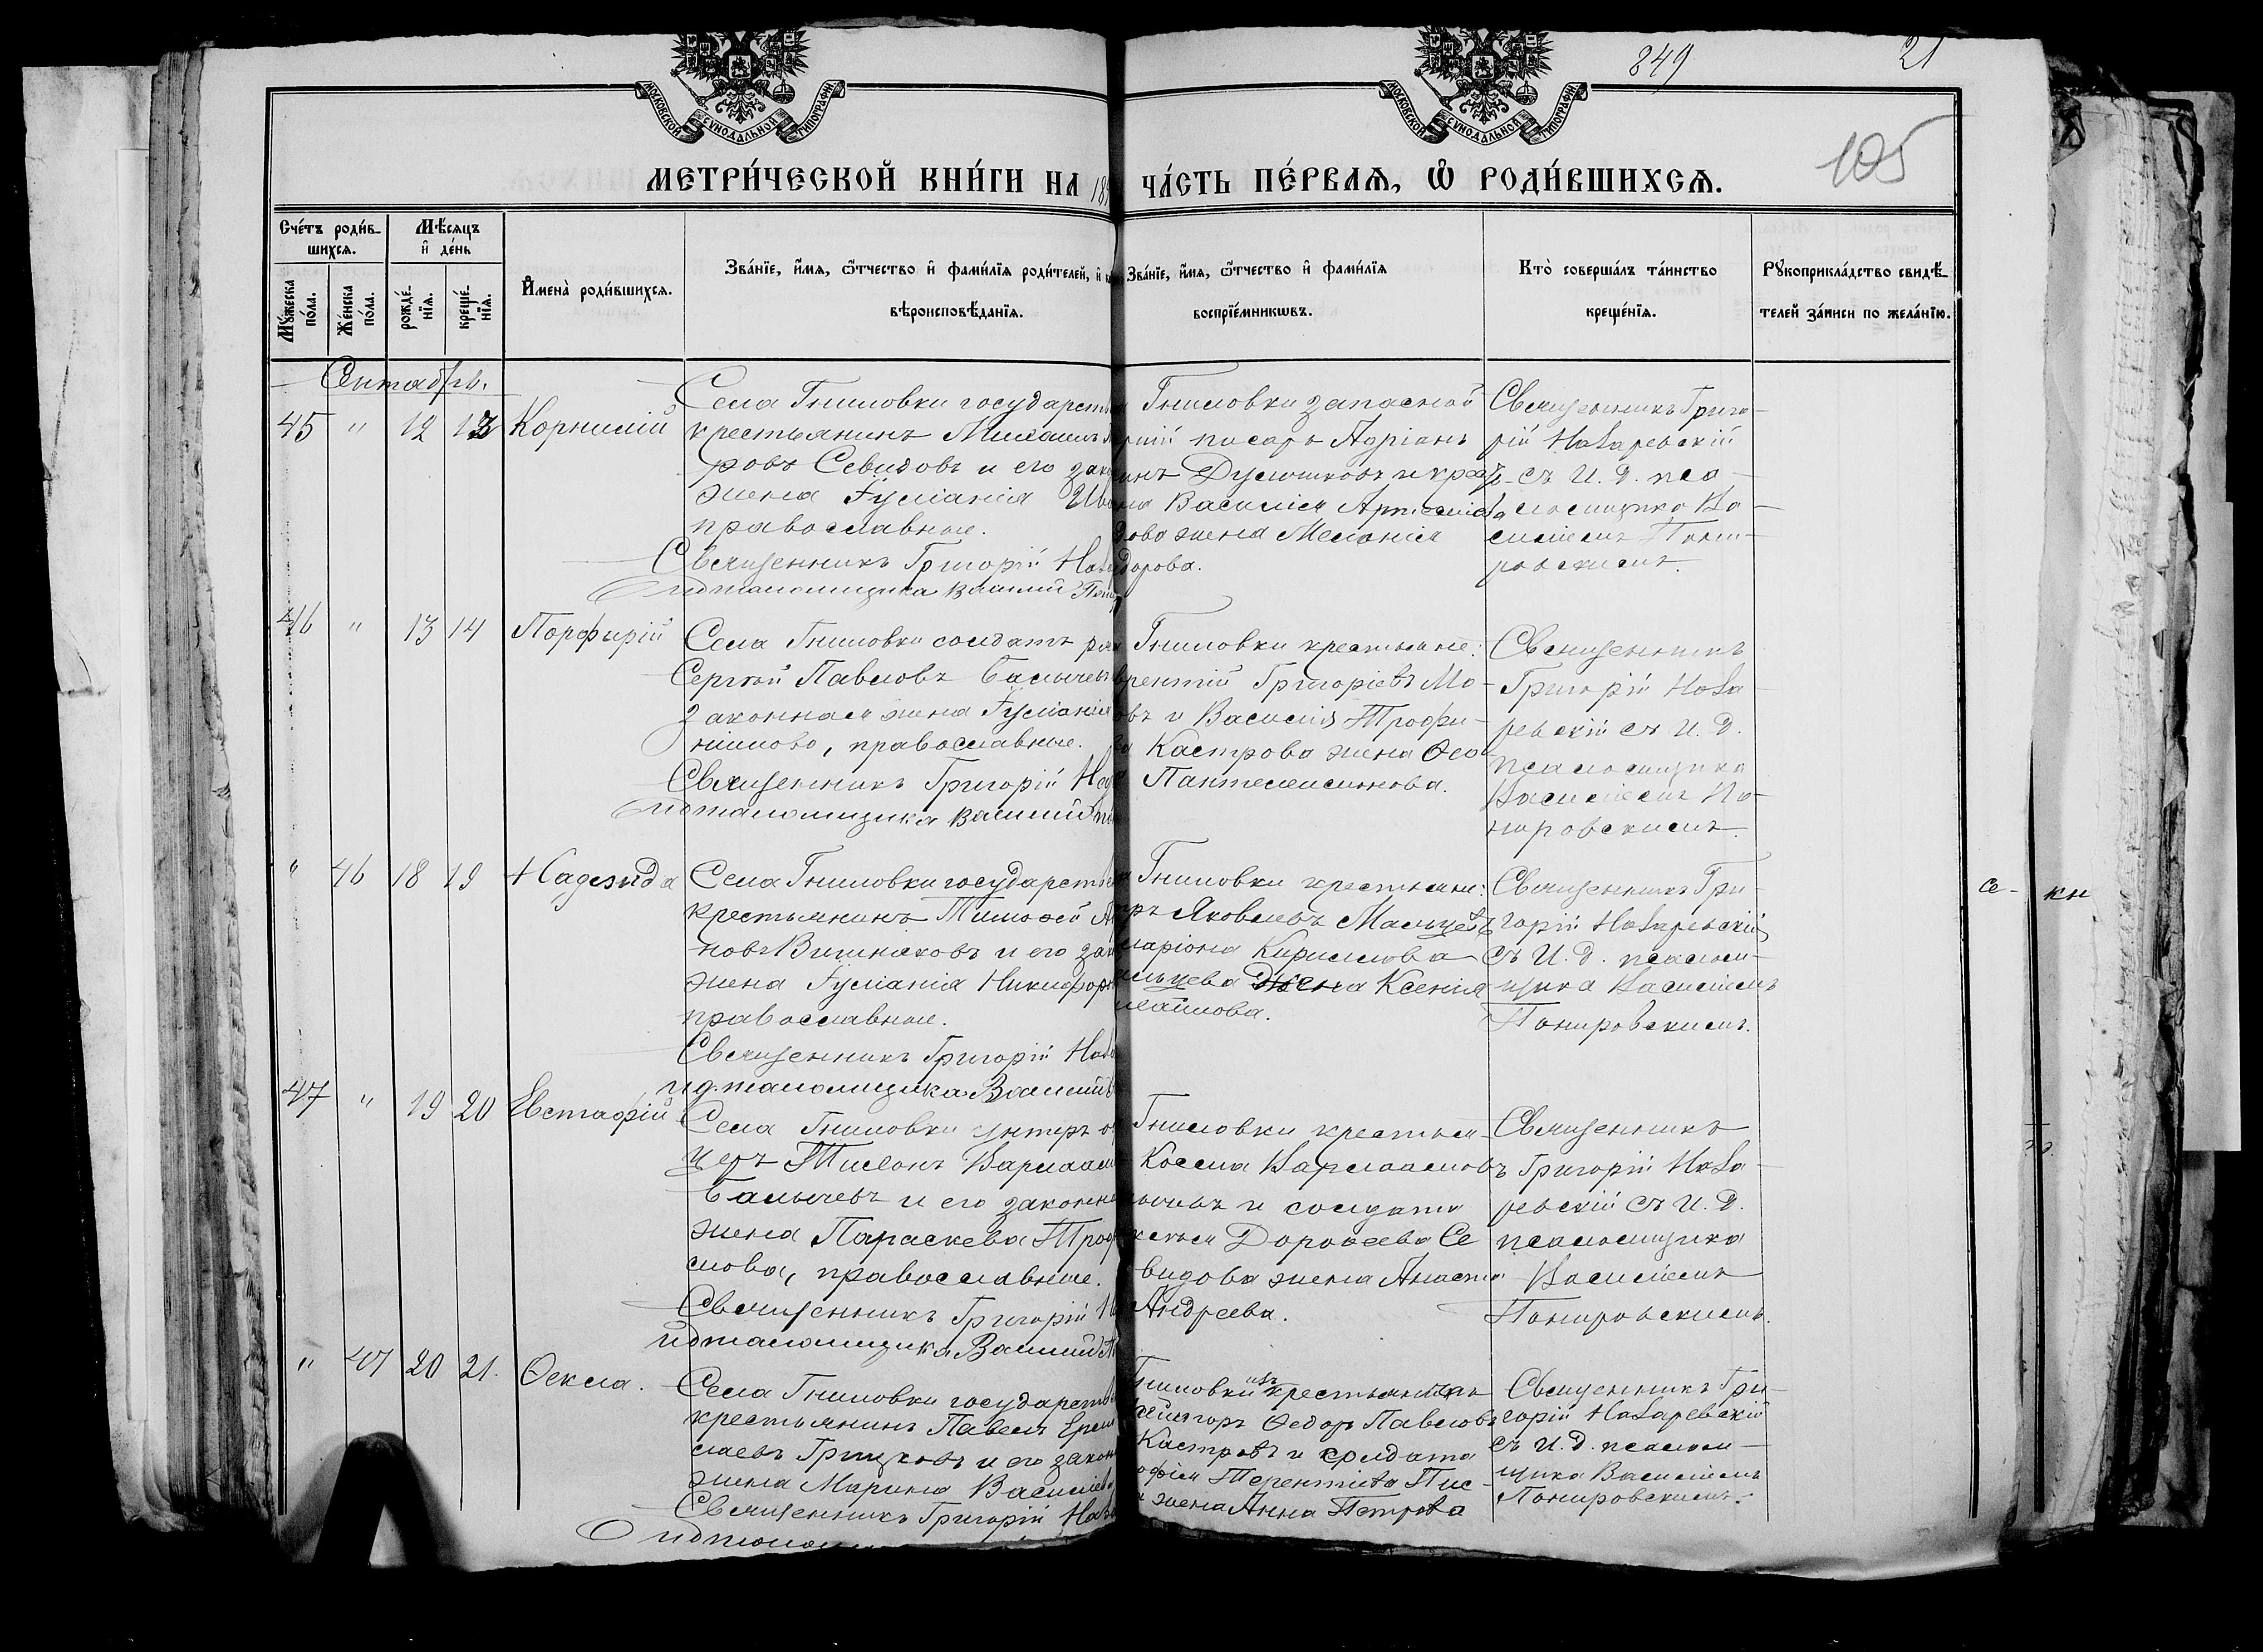 849
21
105
МОСКОВСКОЙ СѴНОДАЛЬНОЙ ТИПОГРАФІИ
МОСКОВСКОЙ СѴНОДАЛЬНОЙ ТИПОГРАФІИ
МЕТРИ́ЧЕСКОЙ КНИ́ГИ НА 189
ЧА́СТЬ ПЕ́РВАѦ, Ѡ҆ РОДИ́ВШИХСѦ.
Сче́тъ роди́в-
шихсѧ.
Мѣ́сяцъ
и҆ де́нь
Мꙋ́жеска
по́ла.
Же́нска
по́ла.
рожде́-
нїѧ.
креще́-
нїѧ.
И҆мена̀ роди́вшихсѧ.
Зва́нїе, и҆́мѧ, ѻ҆́тчество и҆ фами́лїѧ роди́телей, и҆
вѣроисповѣ́данїѧ.
Зва́нїе, и҆́мѧ, ѻ҆́тчество и҆ фами́лїѧ
воспрїе́мникѡвъ.
Кто̀ соверша́лъ та́инство
креще́нїѧ.
Рꙋкоприкла́дство свидѣ́-
телей за́писи по жела́нїю.
Сентябрь.
45 " 12 13 Корнилій
Села Гниловки государств
крестьянинъ Михаилъ
ровъ Севидовъ и его зак
жена Іуліанія Ива
православные.
Священникъ Григорій Наза
И д псаломщика Василий Пони
Гниловки запасной
писарь Адріанъ
инъ Дусюшковъ и кре
на Василія
дова жена Меланія
дорова.
Священникъ Григо-
рій Назаревскій
съ И. Д. пса-
ломщика Ва-
силіемъ Пони-
ровскимъ.
46 " 13 14 Порфирій
Села Гниловки солдатъ ря
Сергѣй Павловъ Балычевъ
законная жена Іуліанія
нилова, православные.
Священникъ Григорій Наз
И д псаломщика Василий По
Гниловки крестьяне:
врентій Григоріевъ Мо-
овъ и Василія Трофи-
Кастрова жена Ѳео
Пантелеимонова.
Священникъ
Григорій Наза-
ревскій съ И. Д.
псаломщика
Василіемъ По-
нировскимъ.
" 46 18 19 Надежда
Села Гниловки государств
крестьянинъ Тимоѳей А
новъ Вишняковъ и его зак
жена Іуліанія Никифор
православные.
Священникъ Григорій Наза
И д. псаломщика Василий
Гниловки крестьяне:
тръ Яковлевъ Мальцевъ
ларіона Кириллова
альцева жена Ксенія
хаилова.
Священникъ Гри-
горій Назаревскій
съ И. Д. псалом-
щика Василіемъ
Понировскимъ.
се - кн
47 " 19 20 Евстафій
Села Гниловки унтеръ о
церъ Тихонъ Варлаам
Балычевъ и его законна
жена Параскева Троф
мова, православные.
Священникъ Григорій На
И д псаломщика Василий По
Гниловки крестья-
Косма Варлаамовъ
лычевъ и солдата
Дороѳеева Се
видова жена Анаста
Андреева.
Священникъ
Григорій Наза-
ревскій съ И. Д.
псаломщика
Василіемъ
Понировскимъ.
" 47 20 21. Ѳекла.
Села Гниловки государств
крестьянинъ Павелъ Ерем
лаевъ Грицковъ и его закон
жена Марина Василіева
Священникъ Григорій Наза
И д псалом
Гниловки изъ крестьянъ
Ѳедоръ Павловъ
Кастровъ и солдата
офія Терентіева Пис-
жена Анна Петрова
Священникъ Гри-
горій Назаревскій
съ И. Д. псалом-
щика Василіемъ
Понировскимъ.